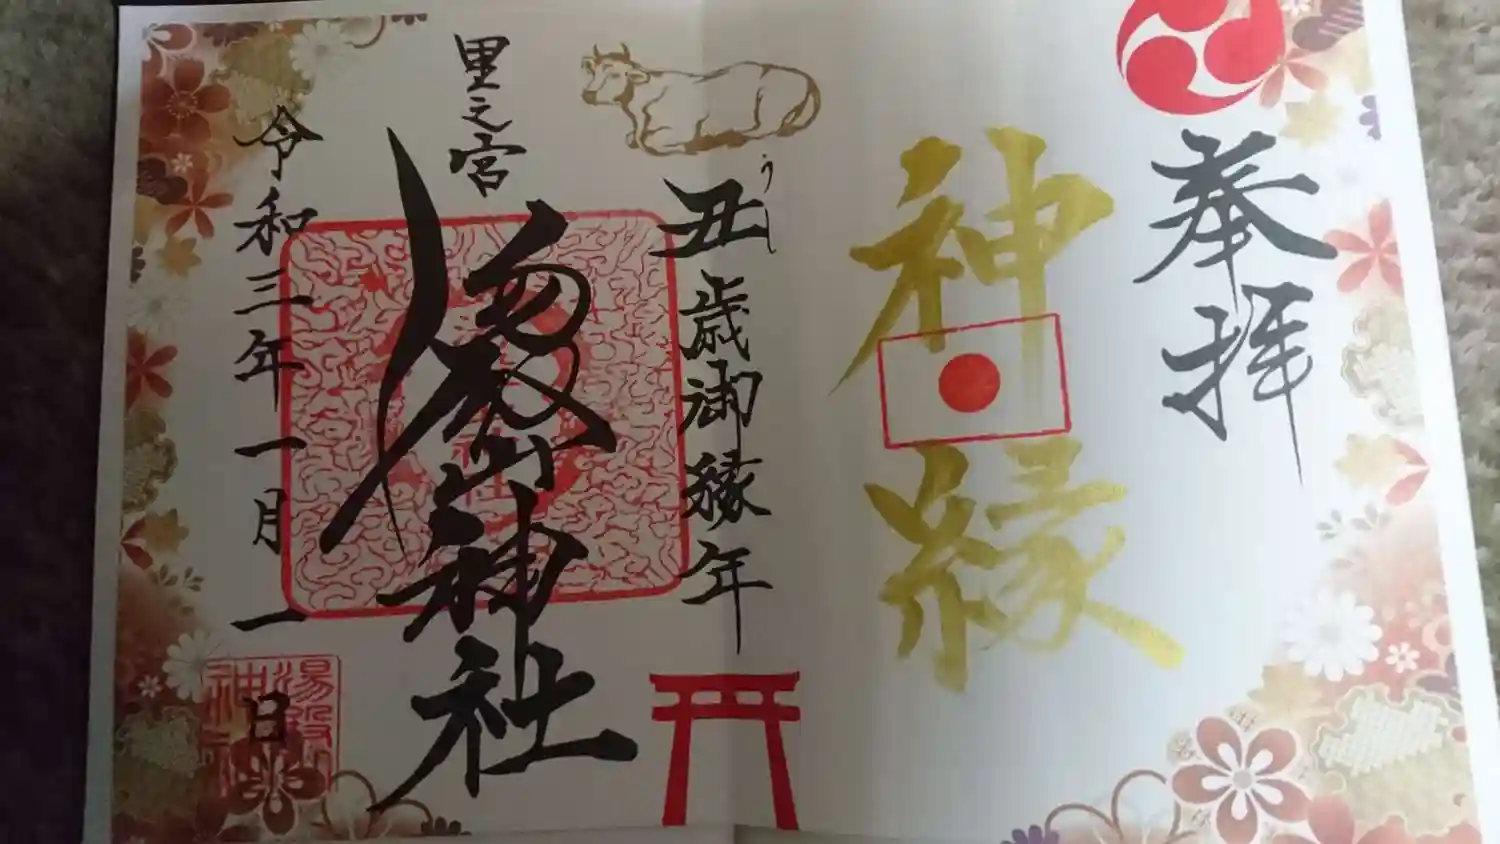 奉拝
神縁
丑歳御縁年
うし
里之宮
湯殿山神社
令和三年一月一日
湯殿山
神社